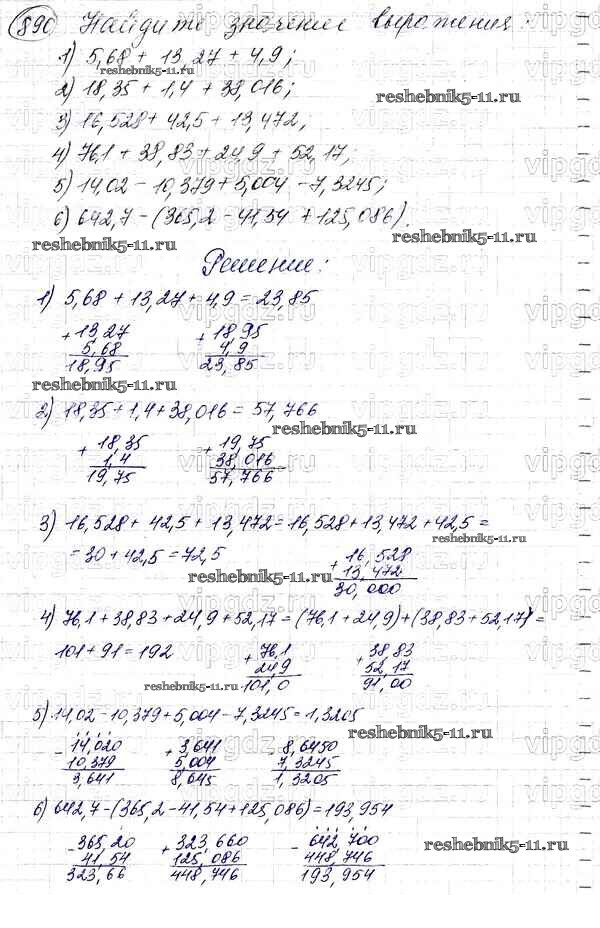 890 Найдите значение выражения:
1) 5,68 + 13,27 + 4,9;
reshebnik5-11.ru
2) 18,35 + 1,4 + 38,016;
reshebnik5-11.ru
3) 16,528 + 42,5 + 13,472;
4) 76,1 + 38,83 + 24,9 + 52,17;
5) 14,02 - 10,379 + 5,004 - 7,3245;
6) 642,7 - (365,2 - 41,54 + 125,086).
reshebnik5-11.ru
Решение:
1) 5,68 + 13,27 + 4,9 = 23,85
+ 13,27 + 18,95
5,68 4,9
18,95 23,85
reshebnik5-11.ru
2) 18,35 + 1,4 + 38,016 = 57,766
reshebnik5-11.ru
+ 18,35 + 19,75
1,4 38,016
19,75 57,766
3) 16,528 + 42,5 + 13,472 = 16,528 + 13,472 + 42,5 =
reshebnik5-11.ru
= 30 + 42,5 = 72,5 + 16,528
reshebnik5-11.ru 13,472
30,000
4) 76,1 + 38,83 + 24,9 + 52,17 = (76,1 + 24,9) + (38,83 + 52,17) =
101 + 91 = 192 + 76,1 + 38,83
24,9 52,17
reshebnik5-11.ru 101,0 91,00
5) 14,02 - 10,379 + 5,004 - 7,3245 = 1,3205
- 14,020 + 3,641 - 8,6450
10,379 5,004 7,3245
3,641 8,645 1,3205
6) 642,7 - (365,2 - 41,54 + 125,086) = 193,954
- 365,20 + 323,660 - 642,700
41,54 125,086 448,746
323,66 448,746 193,954
reshebnik5-11.ru
vipgdz.ru